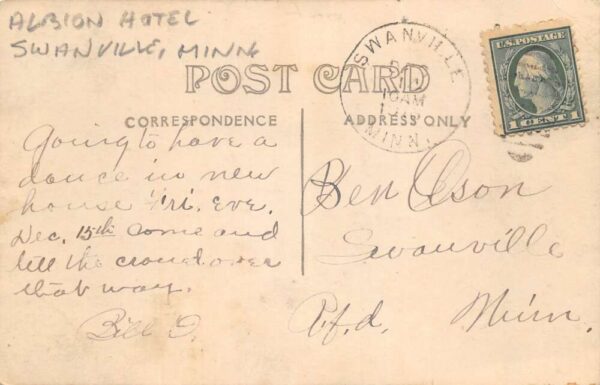 ALBION HOTEL
SWANVILLE, MINN
POST CARD
CORRESPONDENCE
ADDRESS ONLY
SWANVILLE
10AM
MINN.
U.S. POSTAGE
1 CENT 1
Going to have a
dance in new
house Fri. Eve.
Dec. 15th come and
tell the crowd over
that way.
Bill
Ben Olson
Swanville
R.f.d. Minn.